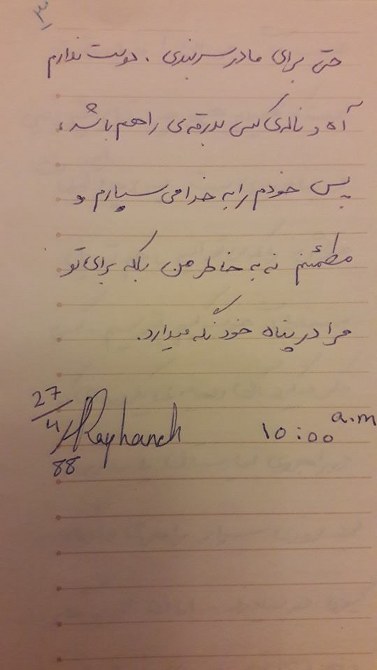 ۳
حتی برای مادر سربندی . دوست ندارم
آه و ناله‌ی کسی بدرقه‌ی راهم باشد،
پس خودم را به خدا می سپارم و
مطمئنم نه به خاطر من بلکه برای تو
مرا در پناه خود نگه میدارد.
27/4/88 Rayhaneh 10:00 a.m